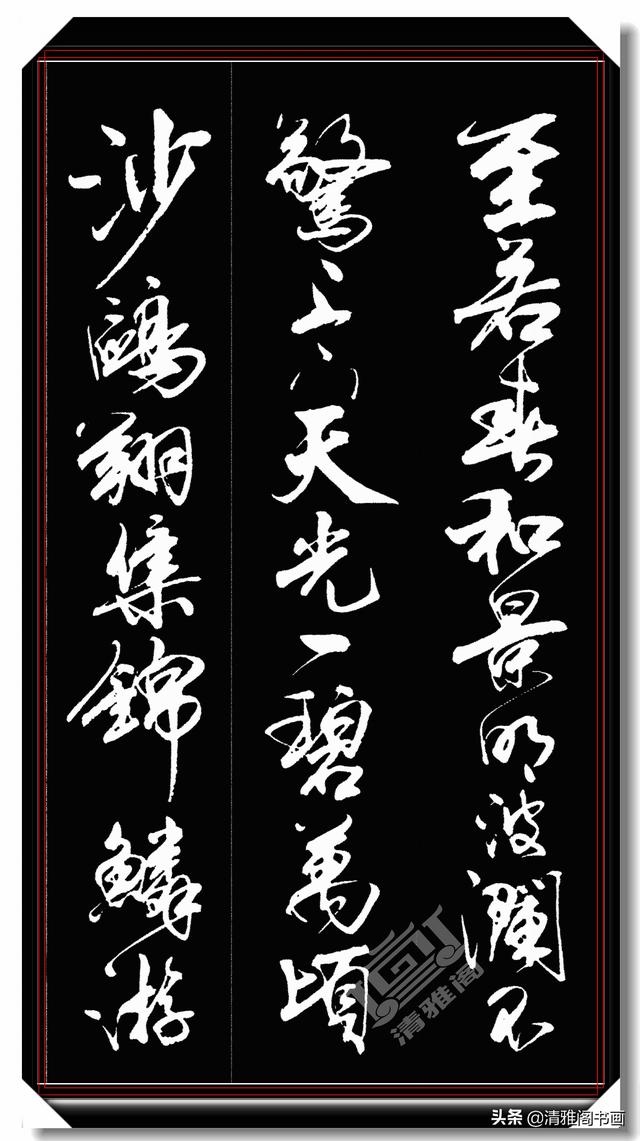 至若春和景明波瀾不
驚上下天光一碧萬頃
沙鷗翔集錦鱗游
清雅阁
头条 @清雅阁书画